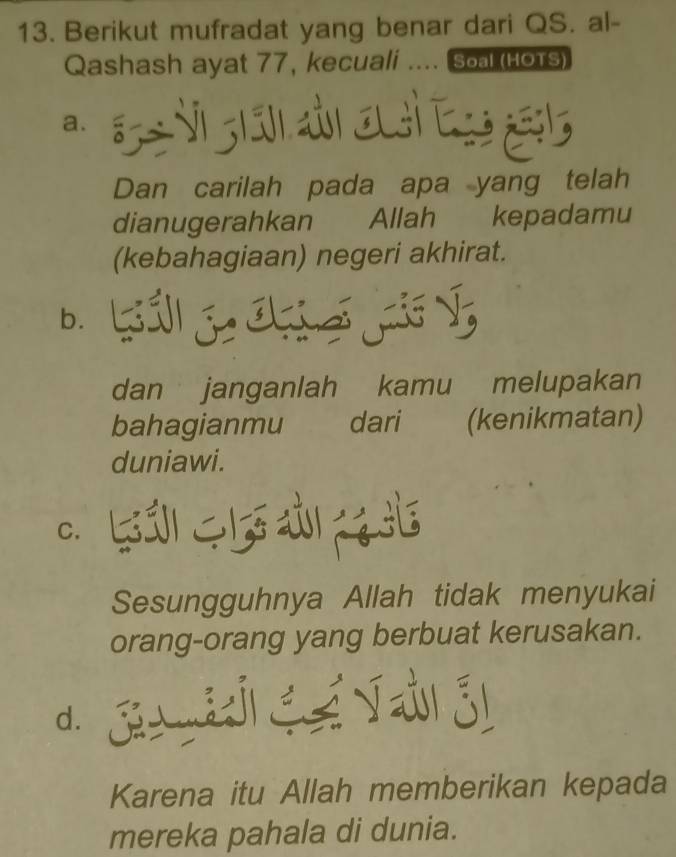 13. Berikut mufradat yang benar dari QS. al-
Qashash ayat 77, kecuali .... Soal (HOTS)
a. وَابْتَغِ فِيْمَآ اٰتٰىكَ اللّٰهُ الدَّارَ الْاٰخِرَةَ
Dan carilah pada apa yang telah
dianugerahkan Allah kepadamu
(kebahagiaan) negeri akhirat.
b. وَلَا تَنْسَ نَصِيْبَكَ مِنَ الدُّنْيَا
dan janganlah kamu melupakan
bahagianmu dari (kenikmatan)
duniawi.
c. فَاٰتٰىهُمُ اللّٰهُ ثَوَابَ الدُّنْيَا
Sesungguhnya Allah tidak menyukai
orang-orang yang berbuat kerusakan.
d. اِنَّ اللّٰهَ لَا يُحِبُّ الْمُفْسِدِيْنَ
Karena itu Allah memberikan kepada
mereka pahala di dunia.